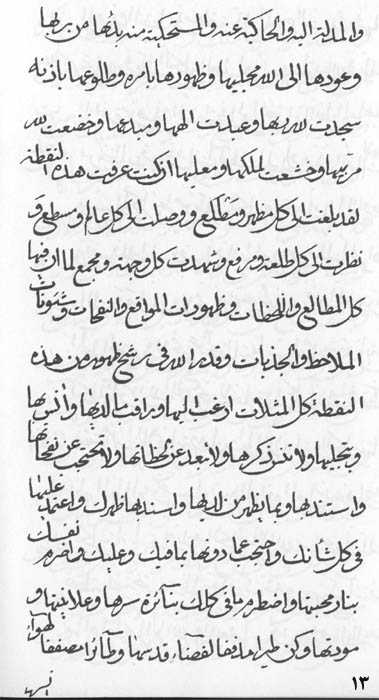 والمدلة اليه والحاكية عنه والمستحكية منه بدئها من ربها
وعودها الى الله مجليها وظهورها بامره وطلوعها باذنه
سجدت لله ربها وعبدت الهها ومبدعها وخضعت لله
مربيها وخشعت لملكها ومعليها اذ كنت عرفت هذه النقطة
لقد بلغت الى كل مظهر ومطلع ووصلت الى كل عالم ومسطع و
نظرت الى كل طلعة ومرفع وشهدت كل وجهة ومجمع لما ان فيها
كل المطالع واللحظات وظهورات المواقع والنفحات وشئونات
الملاحظ والجذبات وقدر الله في رشح ظهور من هذه
النقطة كل المثلات ارغب اليها وراقب لديها وأنس بها
وتجليها ولا تنس ذكرها ولا تبعد عن لحظاتها ولا تحتجب عن نفحاتها
واستند بها وبما يظهر من لديها واسند بها ظهرك واعتمد عليها
في كل شأنك واحتجب عما دونها بما فيك وعليك واضرم نفسك
بنار محبتها واضطرم ما في كلك بنائرة سرها وعلانيتها و
مودتها وكن طيرا مدففا لفضاء قدسها وطائرا مصففا لهواء
انسها
١٣